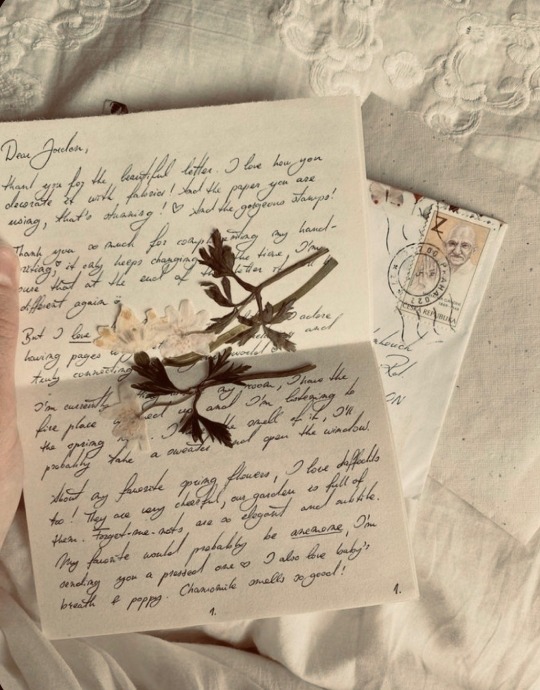 Dear Jordan,
thank you for the beautiful letter. I love how you
decorate it with fabrics! And the paper you are
using, that's stunning! ♡ And the gorgeous stamps!
Thank you so much for complimenting my hand-
writing ♡ it only keeps changing the time, I'm
sure that at the end of the letter it
different again
But I love adore
having pages and
truly connecting world
I'm currently my room, I have the
fire place up and I'm listening to
the spring the smell of it, I'll
probably take a sweater and open the window.
About my favorite spring flowers, I love daffodils
too! They are very cheerful, our garden is full of
them. Forget-me-nots are so elegant and subtle.
My favorite would probably be anemone, I'm
sending you a pressed one ♡ I also love baby's
breath & poppy. Chamomile smells so good!
1.
1.
Z
PRAHA 02
ČESKÁ REPUBLIKA
ON